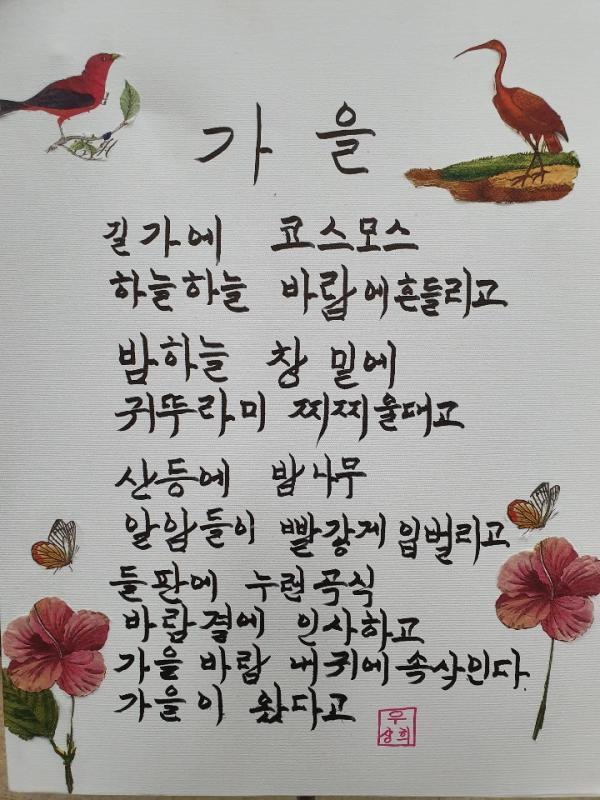 가을
길가에 코스모스
하늘하늘 바람에 흔들리고
밤하늘 창 밑에
귀뚜라미 찌찌울대고
산등에 밤나무
알암들이 빨갛게 입벌리고
들판에 누런곡식
바람결에 인사하고
가을 바람 내귀에 속삭인다.
가을이 왔다고
우
상희